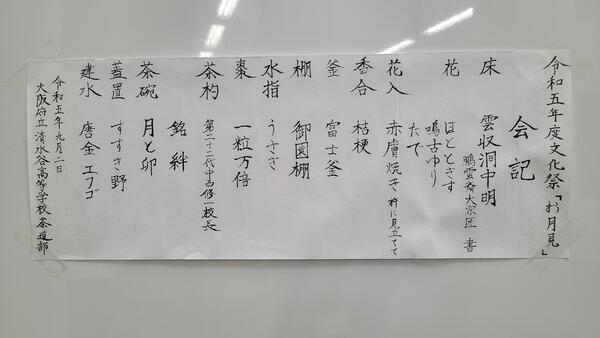 令和五年度文化祭「お月見」
会記
床 雲収洞中明
鵬雲斎大宗匠 書
花 ほととぎす
鳴古ゆり
たで
花入 赤膚焼き 杵に見立てて
香合 桔梗
釜 富士釜
棚 御園棚
水指 うさぎ
棗 一粒万倍
茶杓 第二十二代中古修一校長
銘 絆
茶碗 月と卯
蓋置 すすき野
建水 唐金エフゴ
令和五年九月二日
大阪府立清水谷高等学校茶道部